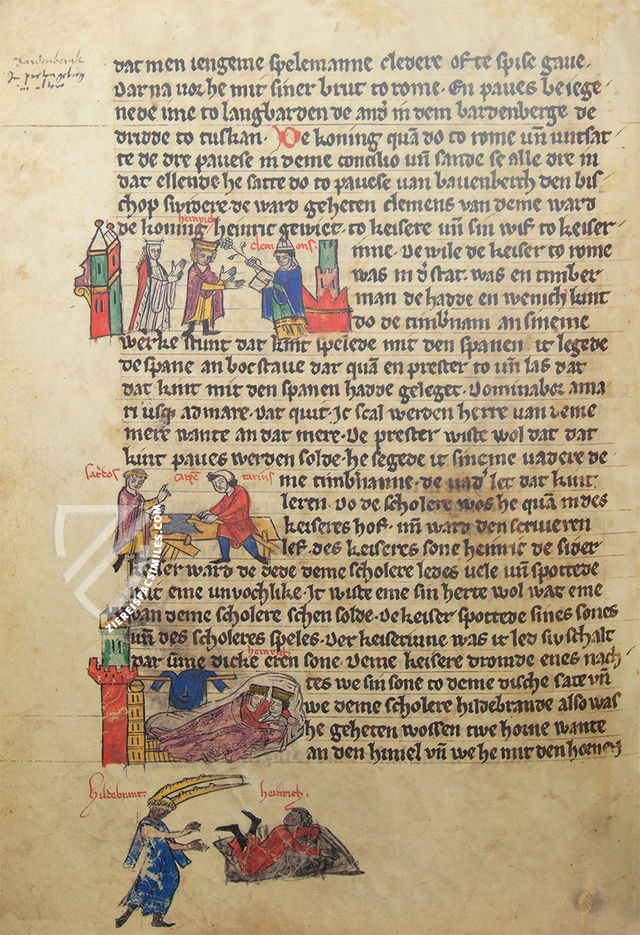 dat men iengeme spelemanne cledere ofte spise gaue.
Dar na vor he mit siner brut to rome. En paues beiege
nede ime to langbarden de and in dem bardenberge de
dridde to tuskan. De koning quā do to rome vn̄ untsat
te de dre pauese in deme concilio vn̄ sande se alle dre in
dat ellende he satte do to pauese van bauenberch den bis
chop sividere de ward geheten clemens van deme ward
heinrich
de koning heinric gewiet to keisere vn̄ sin wif to keiser
clem ons.
inne. De wile de keiser to rome
was in d stat was en timber
man de hadde en wenich kint
do de timbman an sineme
werke stunt dat kint spelede mit den spanen it legede
de spane an bocstaue dat quā en prester to vn̄ las dat
dat kint mit den spanen hadde geleget. Dominabor a ma
ri usq ad mare. Dat quit. Ic scal werden herre van deme
mere wante an dat mere. De prester wiste wol dat dat
kint paues werden solde. he segede it sineme vadere de
sacdos carpe tarius
me timbmanne. de vad let dat kint
leren. Do de scholere wos he quam in des
keiseres hof. vn̄ ward den scriueren
lef. des keiseres sone heinric de sider
keiser ward de dede deme scholere ledes vele vn̄ spottede
mit eme unvochlike. It wiste eme sin herte wol wat eme
van deme scholere schen solde. De keiser spottede sines sones
vn̄ des scholeres speles. Der keiserinne was it led siv schalt
dar umme dicke eren sone. Deme keisere dromde enes nach
heinrich
tes we sin sone to deme dische sate vn̄
we deme scholere hildebrande also was
he geheten wossen twe horne wante
an den himel vn̄ we he mit den hornen
hildebrant. heinrich.
ZIEREIS FACSIMILES.COM